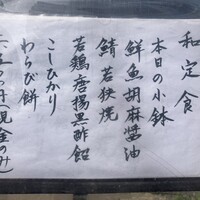 和定食
本日の小鉢
鮮魚胡麻醤油
鯖若狭焼
若鶏唐揚黒酢餡
こしひかり
わらび餅
(現金のみ)